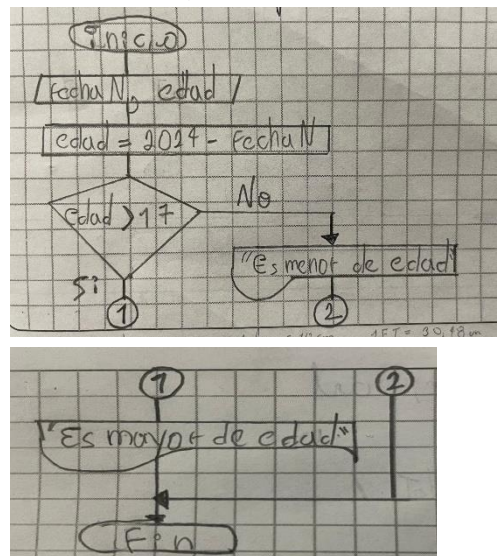 Inicio
fechaN, edad
edad = 2024 - FechaN
edad > 17
No
"Es menor de edad"
Si
1
2
1FT = 30,48 cm
1
2
"Es mayor de edad"
Fin